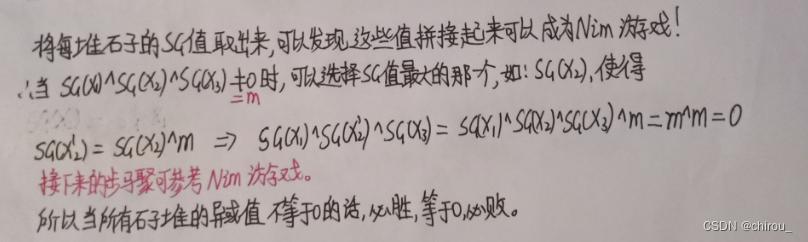 将每堆石子的SG值取出来,可以发现,这些值拼接起来可以成为Nim游戏!
∴当 SG(X₁)^SG(X₂)^SG(X₃)≠0时,可以选择SG值最大的那一个,如:SG(X₂),使得
=m
SG(X₂')=SG(X₂)^m ⇒ SG(X₁)^SG(X₂')^SG(X₃)=SG(X₁)^SG(X₂)^SG(X₃)^m=m^m=0
接下来的步骤可参考Nim游戏。
所以当所有石子堆的异或值不等于0的话,必胜,等于0,必败。
CSDN @chirou_